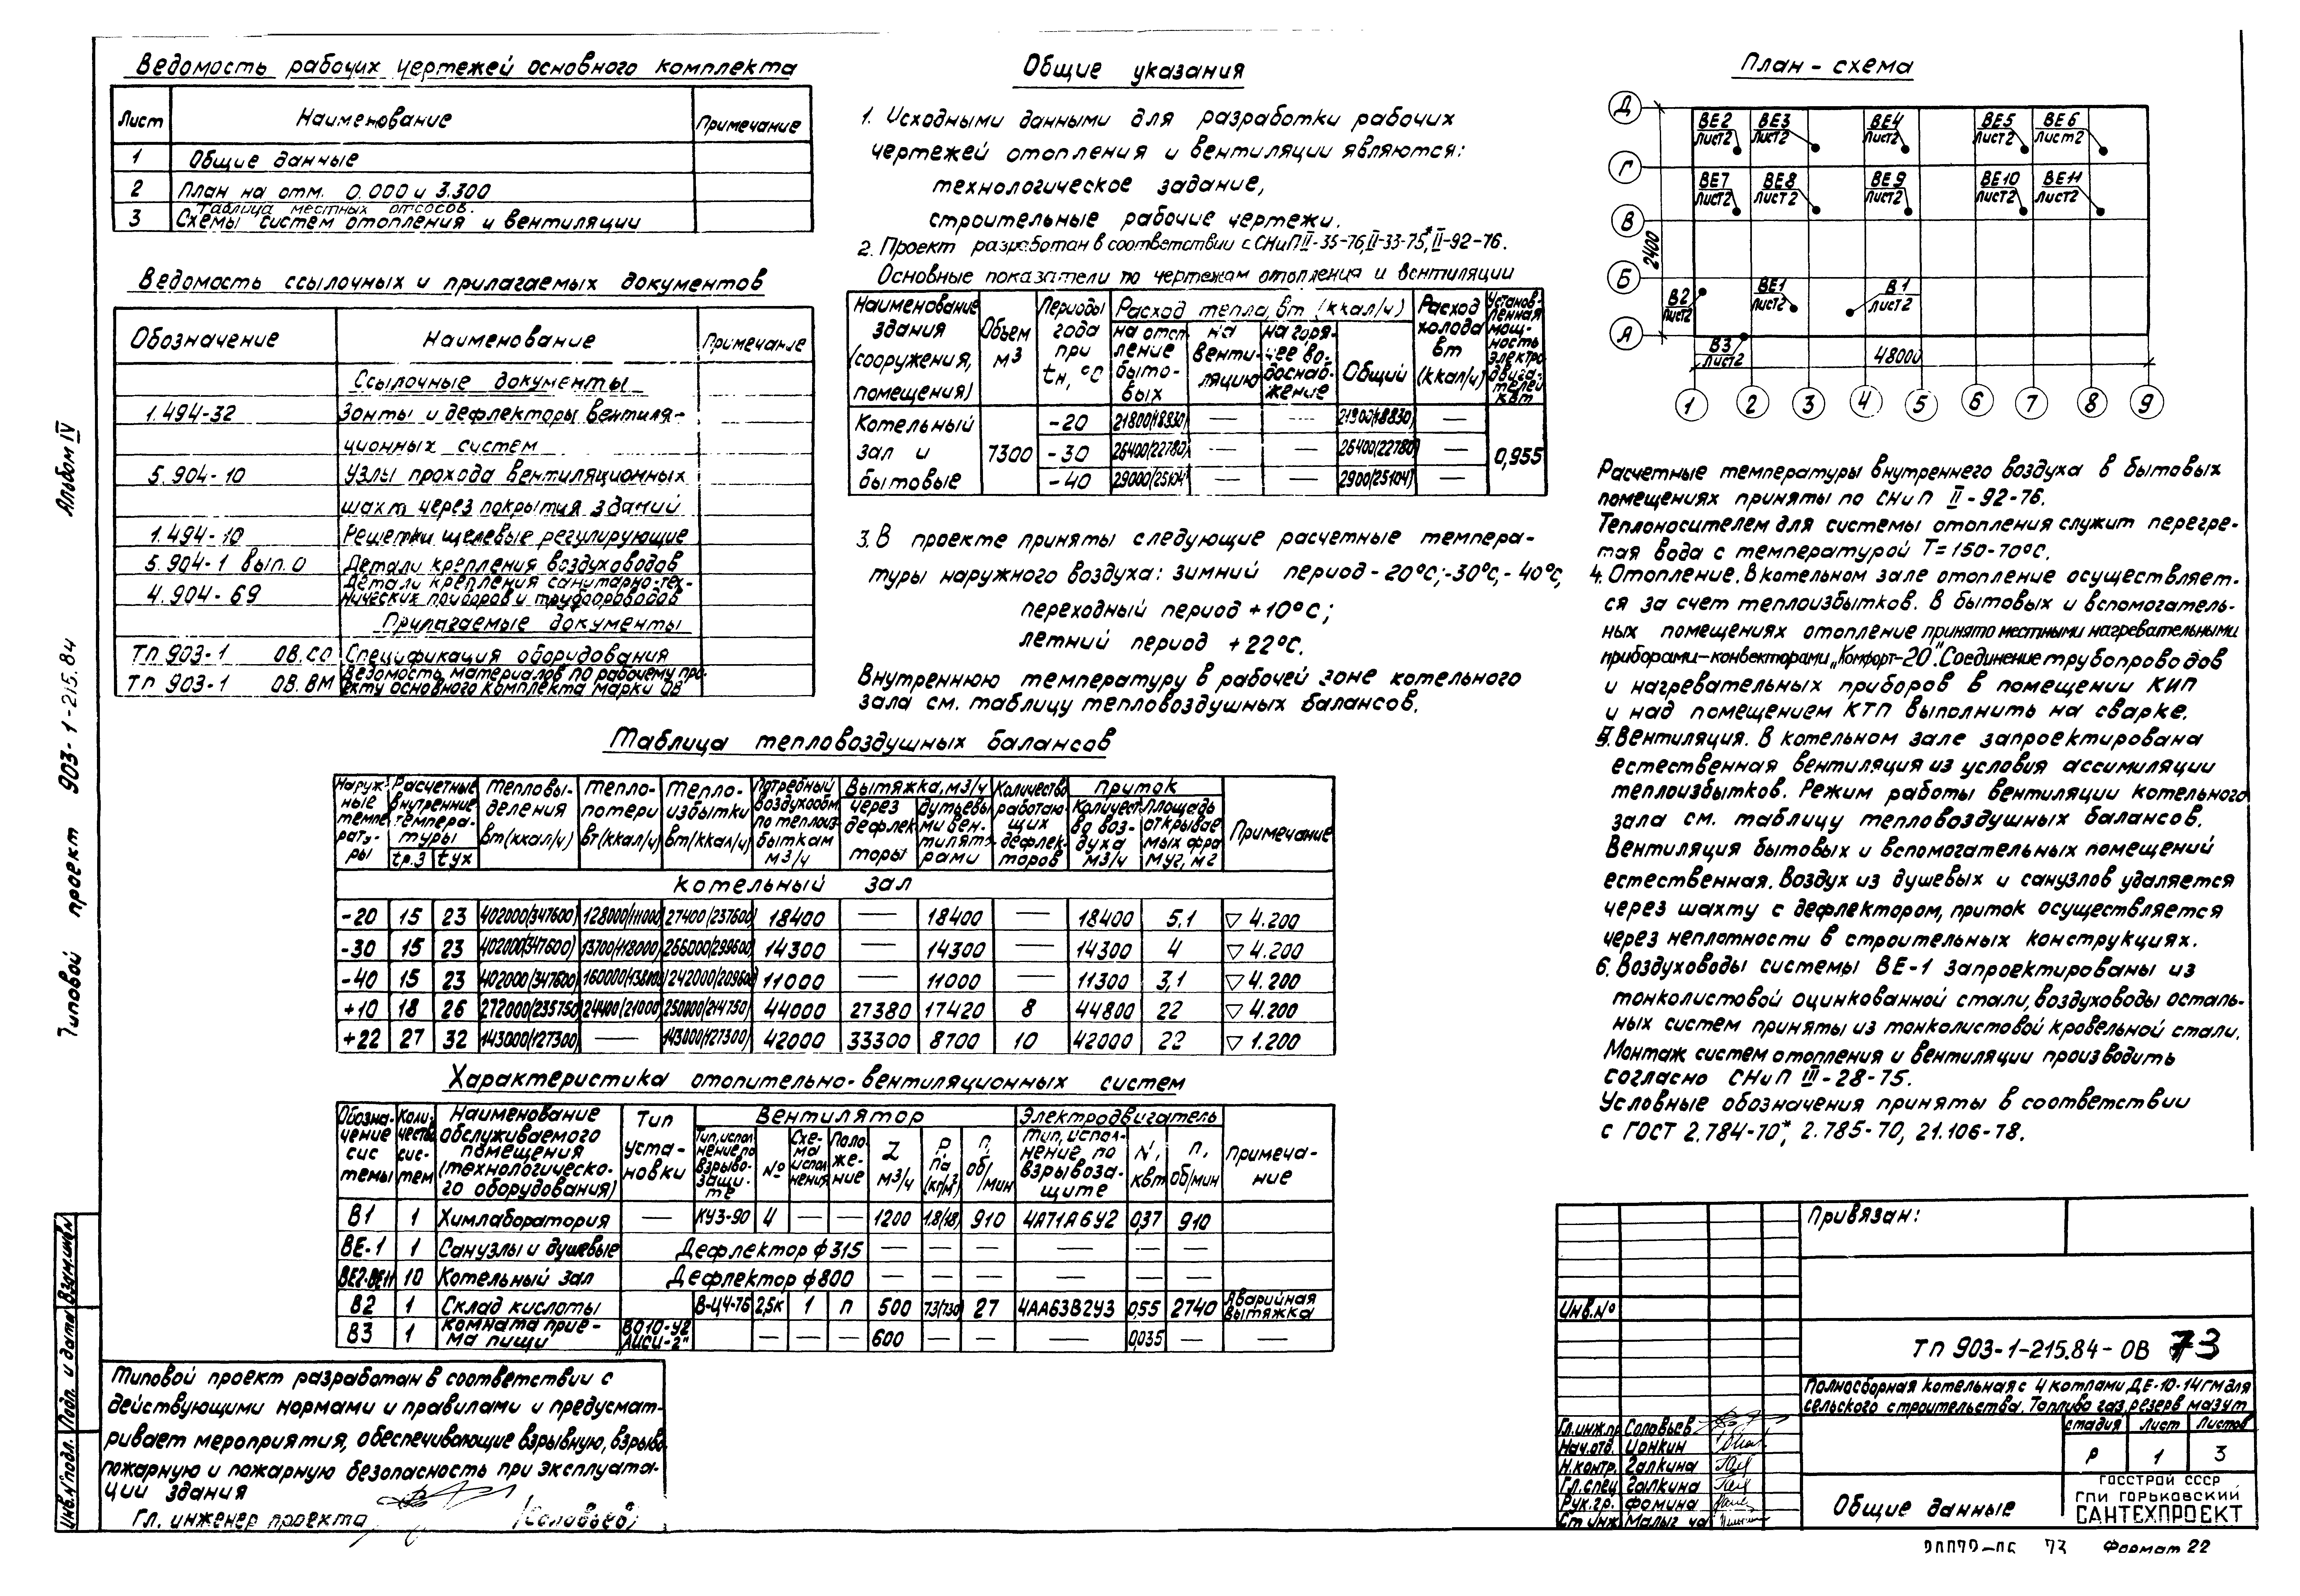 Ведомость рабочих чертежей основного комплекта
Лист Наименование Примечание
1 Общие данные
2 План на отм. 0.000 и 3.300
Таблица местных отсосов.
3 Схемы систем отопления и вентиляции
Ведомость ссылочных и прилагаемых документов
Обозначение Наименование Примечание
Ссылочные документы
1.494-32 Зонты и дефлекторы вентиля-
ционных систем
5.904-10 Узлы прохода вентиляционных
шахт через покрытия зданий
1.494-10 Решетки щелевые регулирующие
5.904-1 вып.0 Детали крепления воздуховодов
4.904-69 Детали крепления санитарно-тех-
нических приборов и трубопроводов
Прилагаемые документы
ТП 903-1 ОВ.СО Спецификация оборудования
ТП 903-1 ОВ.ВМ Ведомость материалов по рабочему про-
екту основного комплекта марки ОВ
Общие указания
1. Исходными данными для разработки рабочих
чертежей отопления и вентиляции являются:
технологическое задание,
строительные рабочие чертежи.
2. Проект разработан в соответствии с СНиП II-35-76, II-33-75*, II-92-76.
Основные показатели по чертежам отопления и вентиляции
Наименование здания (сооружения, помещения) Объем м3 Периоды года при tн, °С Расход тепла, вт (ккал/ч) Расход холода вт (ккал/ч) Установ-ленная мощ-ность электро двига-телей квт
на отоп ление быто-вых на венти-ляцию на горя-чее во-доснаб-жение Общий
Котельный зал и бытовые 7300 0,955
-20 21800(18830) — — 21900(18830) —
-30 26400(22780) — — 26400(22780) —
-40 29000(25104) — — 2900(25104) —
3. В проекте приняты следующие расчетные темпера-
туры наружного воздуха: зимний период -20°С; -30°С, -40°С,
переходный период +10°С;
летний период +22°С.
Внутреннюю температуру в рабочей зоне котельного
зала см. таблицу тепловоздушных балансов.
План-схема
Д Г В Б А
ВЕ2 лист2 ВЕ3 лист2 ВЕ4 лист2 ВЕ5 лист2 ВЕ6 лист2
ВЕ7 лист2 ВЕ8 лист2 ВЕ9 лист2 ВЕ10 лист2 ВЕ11 лист2
В2 лист2 ВЕ1 лист2 В1 лист2
В3 лист2
2400
48000
1 2 3 4 5 6 7 8 9
Расчетные температуры внутреннего воздуха в бытовых
помещениях приняты по СНиП II-92-76.
Теплоносителем для системы отопления служит перегре-
тая вода с температурой Т=150-70°С.
4. Отопление. В котельном зале отопление осуществляет-
ся за счет теплоизбытков. В бытовых и вспомогатель-
ных помещениях отопление принято местными нагревательными
приборами-конвекторами „Комфорт-20". Соединение трубопроводов
и нагревательных приборов в помещении КИП
и над помещением КТП выполнить на сварке.
5. Вентиляция. В котельном зале запроектирована
естественная вентиляция из условия ассимиляции
теплоизбытков. Режим работы вентиляции котельного
зала см. таблицу тепловоздушных балансов.
Вентиляция бытовых и вспомогательных помещений
естественная. Воздух из душевых и санузлов удаляется
через шахту с дефлектором, приток осуществляется
через неплотности в строительных конструкциях.
6. Воздуховоды системы ВЕ-1 запроектированы из
тонколистовой оцинкованной стали, воздуховоды осталь-
ных систем приняты из тонколистовой кровельной стали.
Монтаж систем отопления и вентиляции производить
согласно СНиП III-28-75.
Условные обозначения приняты в соответствии
с ГОСТ 2.784-70*, 2.785-70, 21.106-78.
Таблица тепловоздушных балансов
Наруж-ные темпе рату-ры Расчетные внутренние темпера-туры Тепловы-деления вт(ккал/ч) Тепло-потери вт(ккал/ч) Тепло-избытки вт(ккал/ч) Потребный воздухообм. по теплоиз-быткам м3/ч Вытяжка, м3/ч Количество работаю-щих дефлек-торов Приток Примечание
tр.з tух через дефлек торы дутьевы ми вен-тилято-рами Количест-во воз-духа м3/ч площадь открывае мых фра муг, м2
Котельный зал
-20 15 23 402000(347600) 128000(111000) 27400(237600) 18400 — 18400 — 18400 5,1 ▽ 4.200
-30 15 23 402000(347600) 13700(118000) 266000(299600) 14300 — 14300 — 14300 4 ▽ 4.200
-40 15 23 402000(347600) 160000(138000) 242000(209600) 11000 — 11000 — 11300 3,1 ▽ 4.200
+10 18 26 272000(235750) 24400(21000) 250000(214750) 44000 27380 17420 8 44800 22 ▽ 4.200
+22 27 32 143000(127300) — 143000(127300) 42000 33300 8700 10 42000 22 ▽ 1.200
Характеристика отопительно-вентиляционных систем
Обозна-чение сис темы Коли-чество сис-тем Наименование обслуживаемого помещения (технологическо-го оборудования) Тип уста-новки Вентилятор Электродвигатель Примеча-ние
Тип, испол нение по взрыво-защи-те № Схе-ма испол нения Поло-же-ние L м3/ч Р, Па (кг/м2) n, об/мин Тип, испол-нение по взрывоза-щите N, квт n, об/мин
В1 1 Химлаборатория — КУЗ-90 4 — — 1200 1.8(18) 910 4А71А6У2 0,37 910
ВЕ-1 1 Санузлы и душевые Дефлектор ф315 — — — — — —
ВЕ2-ВЕ11 10 Котельный зал Дефлектор ф800 — — — — — —
В2 1 Склад кислоты В-Ц4-76 2,5К 1 П 500 73(730) 27 4АА63В2У3 0,55 2740 Аварийная вытяжка
В3 1 Комната прие-ма пищи ВО10-У2 „АИСИ-2" — — — 600 — — — 0,035 — —
Типовой проект разработан в соответствии с
действующими нормами и правилами и предусмат-
ривает мероприятия, обеспечивающие взрывную, взрыво
пожарную и пожарную безопасность при эксплуата-
ции здания
Гл. инженер проекта (Соловьев)
Альбом IV
Типовой проект 903-1-215.84
Инв.№ подл. Подп. и дата Взам.инв.№
Привязан:
Инв.№
ТП 903-1-215.84-ОВ 73
Полносборная котельная с 4 котлами ДЕ-10-14ГМ для
сельского строительства. Топливо газ, резерв мазут
Гл.инж.пр Соловьев
Нач.отд. Ионкин
Н.контр. Галкина
Гл.спец Галкина
Рук.гр. Фомина
Ст.инж
стадия Лист Листов
Р 1 3
Общие данные
ГОССТРОЙ СССР
ГПИ ГОРЬКОВСКИЙ
САНТЕХПРОЕКТ
73 Формат 22